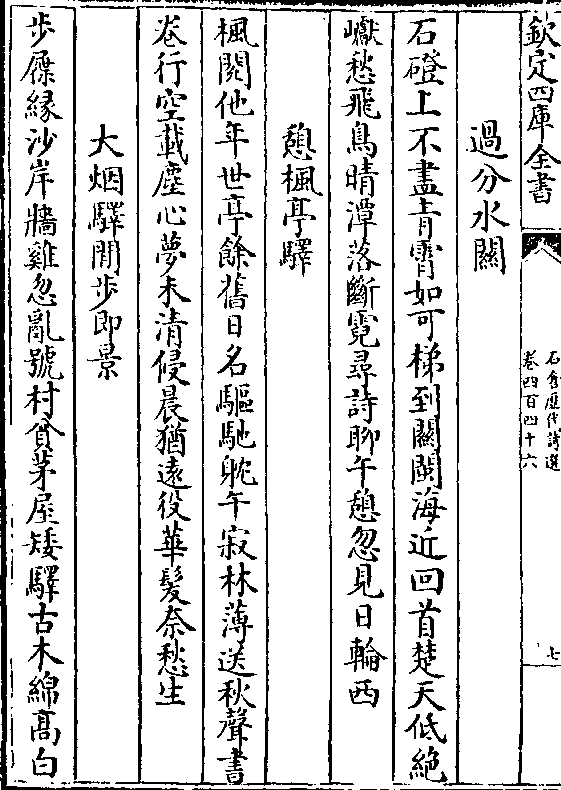 欽定四庫全書
石倉歷代詩選
卷四百四十六
七
過分水關
石磴上不盡青霄如可梯到關閩海近回首楚天低絶
巘愁飛鳥晴潭落斷霓尋詩聊午憩忽見日輪西
憩楓亭驛
楓閱他年世亭餘舊日名驅馳躭午寂林薄送秋聲書
卷行空載塵心夢未清侵晨猶遠役華髪奈愁生
大烟驛閒步即景
步屧緣沙岸牆雞忽亂號村貧茅屋矮驛古木綿髙白